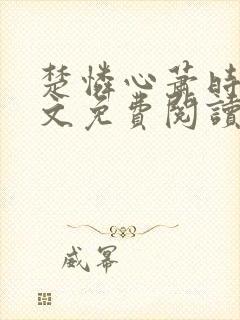 楚憐心蕭時
文免費閱讀
威冪